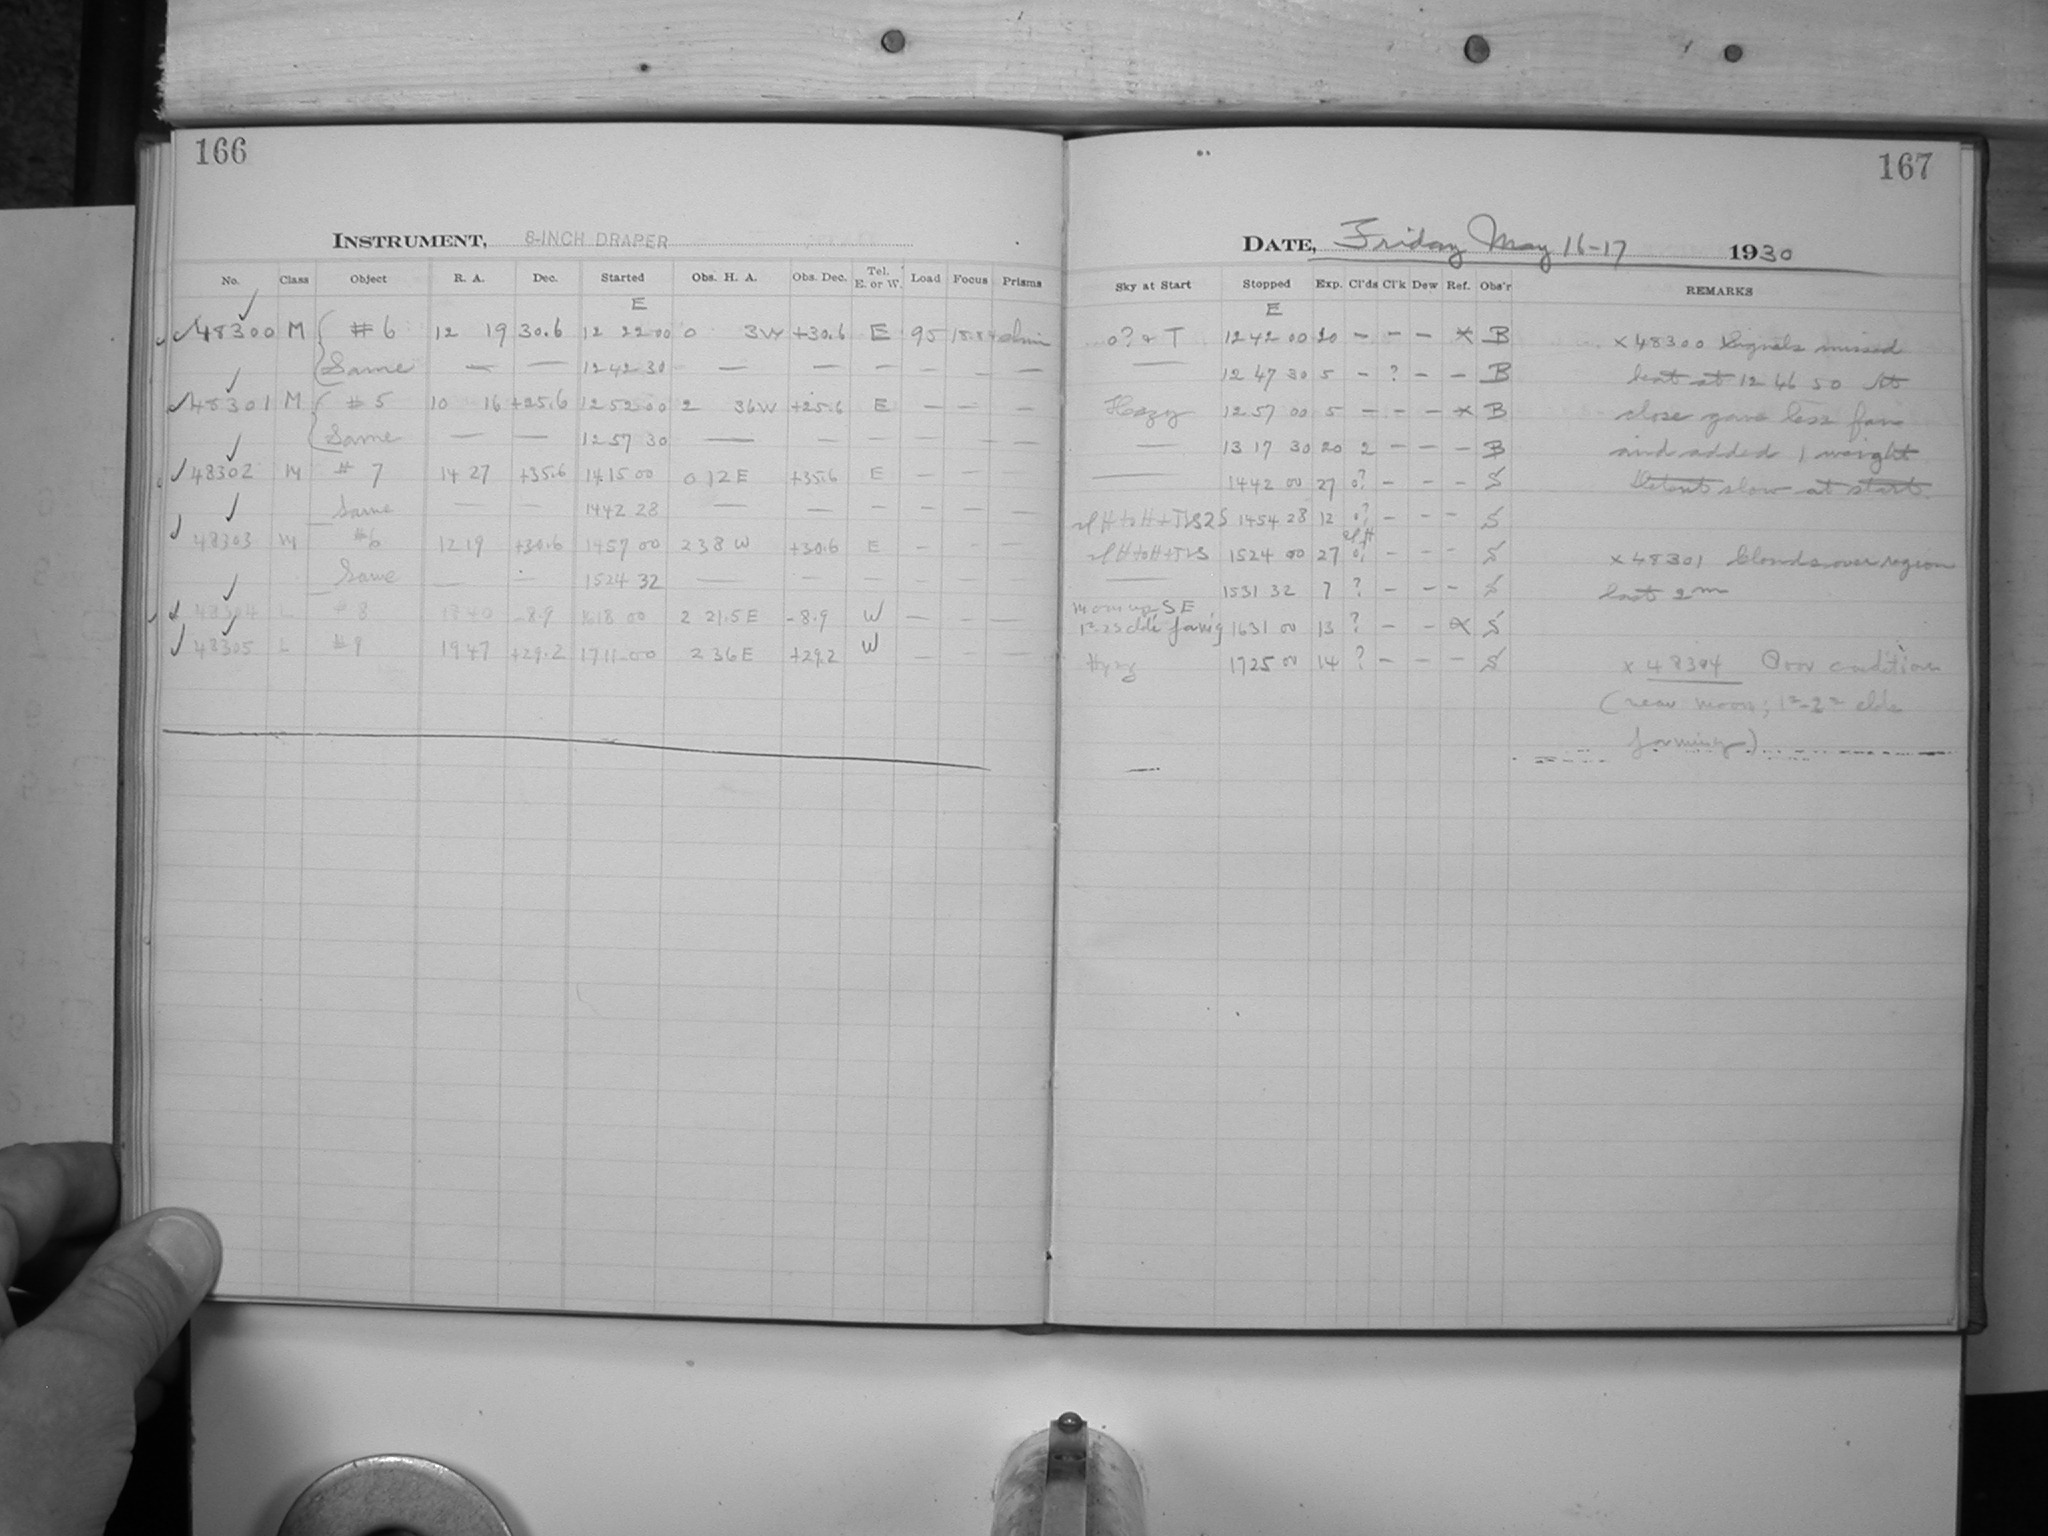 166
INSTRUMENT, 8-INCH DRAPER
No. Class Object R. A. Dec. Started Obs. H. A. Obs. Dec. Tel. E. or W. Load Focus Prisms
E
48300 M # 6 12 19 30.6 12 22 00 0 3W +30.6 E 95
Same — — 12 42 30 — — — — — —
48301 M # 5 10 16 +25.6 12 52 00 2 36W +25.6 E — — —
Same — — 12 57 30 — — — — — —
48302 M # 7 14 27 +35.6 14 15 00 0 12 E +35.6 E — — —
Same — — 14 42 28 — — — — — —
48303 M #6 12 19 +30.6 14 57 00 2 38 W +30.6 E — — —
Same — — 15 24 32 — — — — — —
48304 L #8 18 40 -8.9 16 18 00 2 21.5 E -8.9 W — — —
48305 L #9 19 47 +29.2 17 11 00 2 36 E +29.2 W — — —
167
DATE, Friday May 16-17 1930
Sky at Start Stopped Exp. Cl'ds Cl'k Dew Ref. Obs'r REMARKS
E
o? & T 12 42 00 20 — — — x B x 48300 Signals missed
— 12 47 30 5 — ? — — B beat at 12 46 50 At
Hazy 12 57 00 5 — — — x B close gave less fan
— 13 17 30 20 2 — — — B and added 1 weight
— 14 42 00 27 o? — — — S Detent slow at start.
14 54 28 12 o? — — — S
15 24 00 27 o? — — — S x 48301 Clouds over region
— 15 31 32 7 ? — — — S last 2m
moon up SE
16 31 00 13 ? — — x S
Hazy 17 25 00 14 ? — — — S x 48304 Poor condition
(near moon; 1°-2° clds
forming)